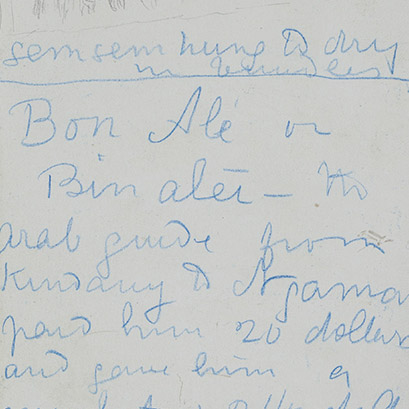 semsem hung to dry
in bundles
Bon Alé or
Bin alēi - the
arab guide from
Kindany to Ngoma
paid him 20 dollars
and gave him a